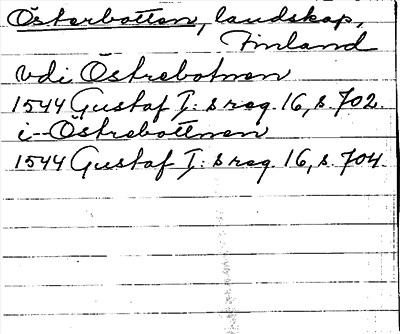 Österbotten, landskap,
Finland
vdi Östrebotnen
1544 Gustaf I: s reg. 16, s. 702.
i Östrebottnen
1544 Gustaf I: s reg. 16, s. 704.